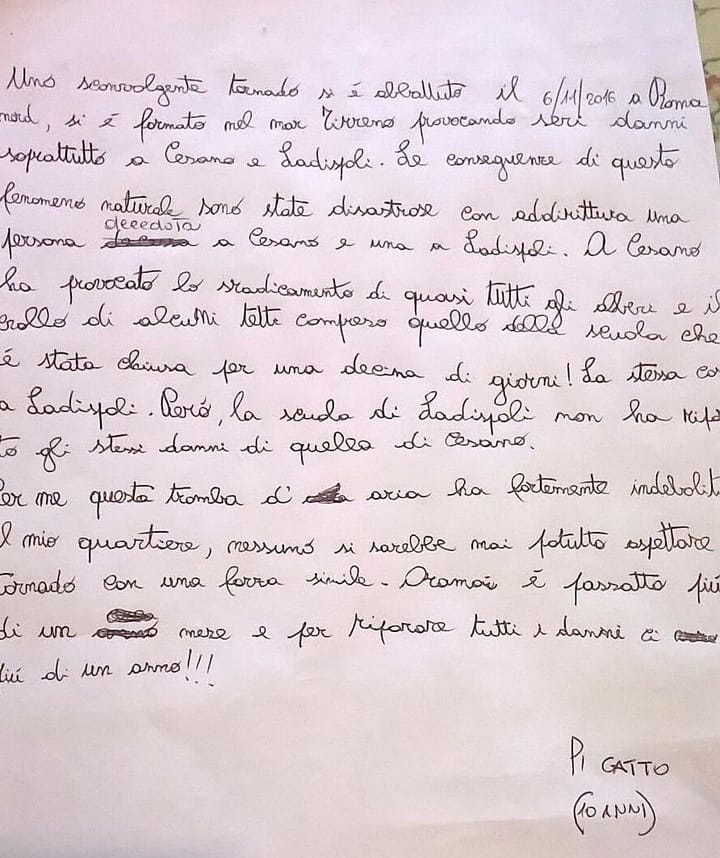 Uno sconvolgente tornado si é abbattuto il 6/11/2016 a Roma
nord, si é formato nel mar Tirreno provocando seri danni
soprattutto a Cesano e Ladispoli. Le conseguenze di questo
fenomeno naturale sono state disastrose con addirittura una
persona deceduta a Cesano e una a Ladispoli. A Cesano
ha provocato lo sradicamento di quasi tutti gli alberi e il
crollo di alcuni tetti compreso quello della scuola che
é stata chiusa per una decina di giorni! La stessa co
a Ladispoli. Peró, la scuola di Ladispoli non ha ripo
to gli stessi danni di quella di Cesano.
Per me questa tromba d' aria ha fortemente indebolit
l mio quartiere, nessuno si sarebbe mai potutto aspettare
tornado con una forza simile. Oramai é passatto piú
di un mese e per riparare tutti i danni ci
piú di un anno!!!
PI GATTO
(10 ANNI)